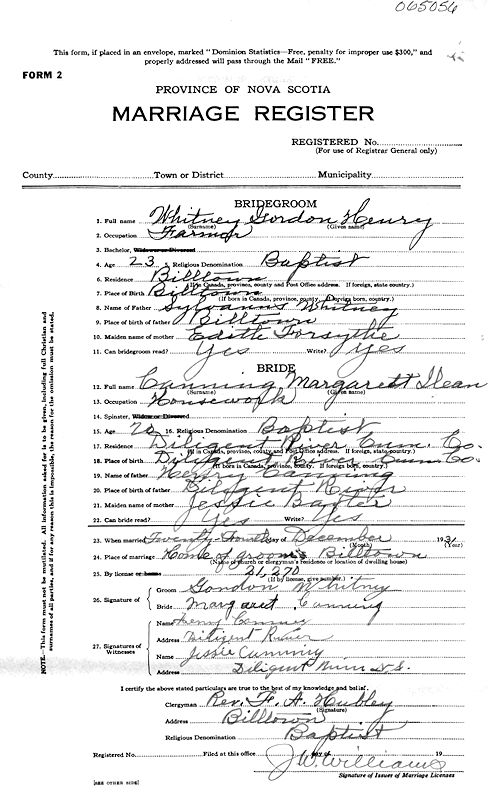 065056
This form, if placed in an envelope, marked "Dominion Statistics—Free, penalty for improper use $300," and
properly addressed will pass through the Mail "FREE."
FORM 2
PROVINCE OF NOVA SCOTIA
MARRIAGE REGISTER
REGISTERED No.
(For use of Registrar General only)
County Town or District Municipality
BRIDEGROOM
1. Full name Whitney Gordon Henry
(Surname) (Given name)
2. Occupation Farmer
3. Bachelor, Widower or Divorced
4. Age 23 5. Religious Denomination Baptist
6. Residence Billtown
(If in Canada, province, county and Post Office address. If foreign, state country.)
7. Place of Birth Billtown
(If born in Canada, province, county. If foreign born, country.)
8. Name of Father Sylvanus Whitney
9. Place of birth of father Billtown
10. Maiden name of mother Edith Forsythe
11. Can bridegroom read? Yes Write? Yes
BRIDE
12. Full name Canning Margarett Ilean
(Surname) (Given name)
13. Occupation Housework
14. Spinster, Widow or Divorced
15. Age 20 16. Religious Denomination Baptist
17. Residence Diligent River Cum. Co.
(If in Canada, province, county and Post Office address. If foreign, state country.)
18. Place of birth Diligent River Cum. Co.
(If born in Canada, province, county. If foreign born, country.)
19. Name of father Henry Canning
20. Place of birth of father Diligent River
21. Maiden name of mother Jessie Baxter
22. Can bride read? Yes Write? Yes
23. When married Twenty-Fourth day of December 1931
(Month) (Year)
24. Place of marriage Home of groom's Billtown
(Name of church or clergyman's residence or location of dwelling house)
25. By license or banns 21,270
(If by license, give number.)
26. Signature of
Groom Gordon Whitney
Bride Margaret Canning
27. Signatures of Witnesses
Name Henry Canning
Address Diligent River
Name Jessie Canning
Address Diligent River N.S.
I certify the above stated particulars are true to the best of my knowledge and belief.
Clergyman Rev. F. A. Hubley
(Signature)
Address Billtown
Religious Denomination Baptist
Registered No. Filed at this office day of 19
J.W. Williams
Signature of Issuer of Marriage Licenses
[SEE OTHER SIDE]
NOTE.—This form must not be mutilated. All information asked for is to be given, including full Christian and
surnames of all parties, and if for any reason this is impossible, the reason for the omission must be stated.